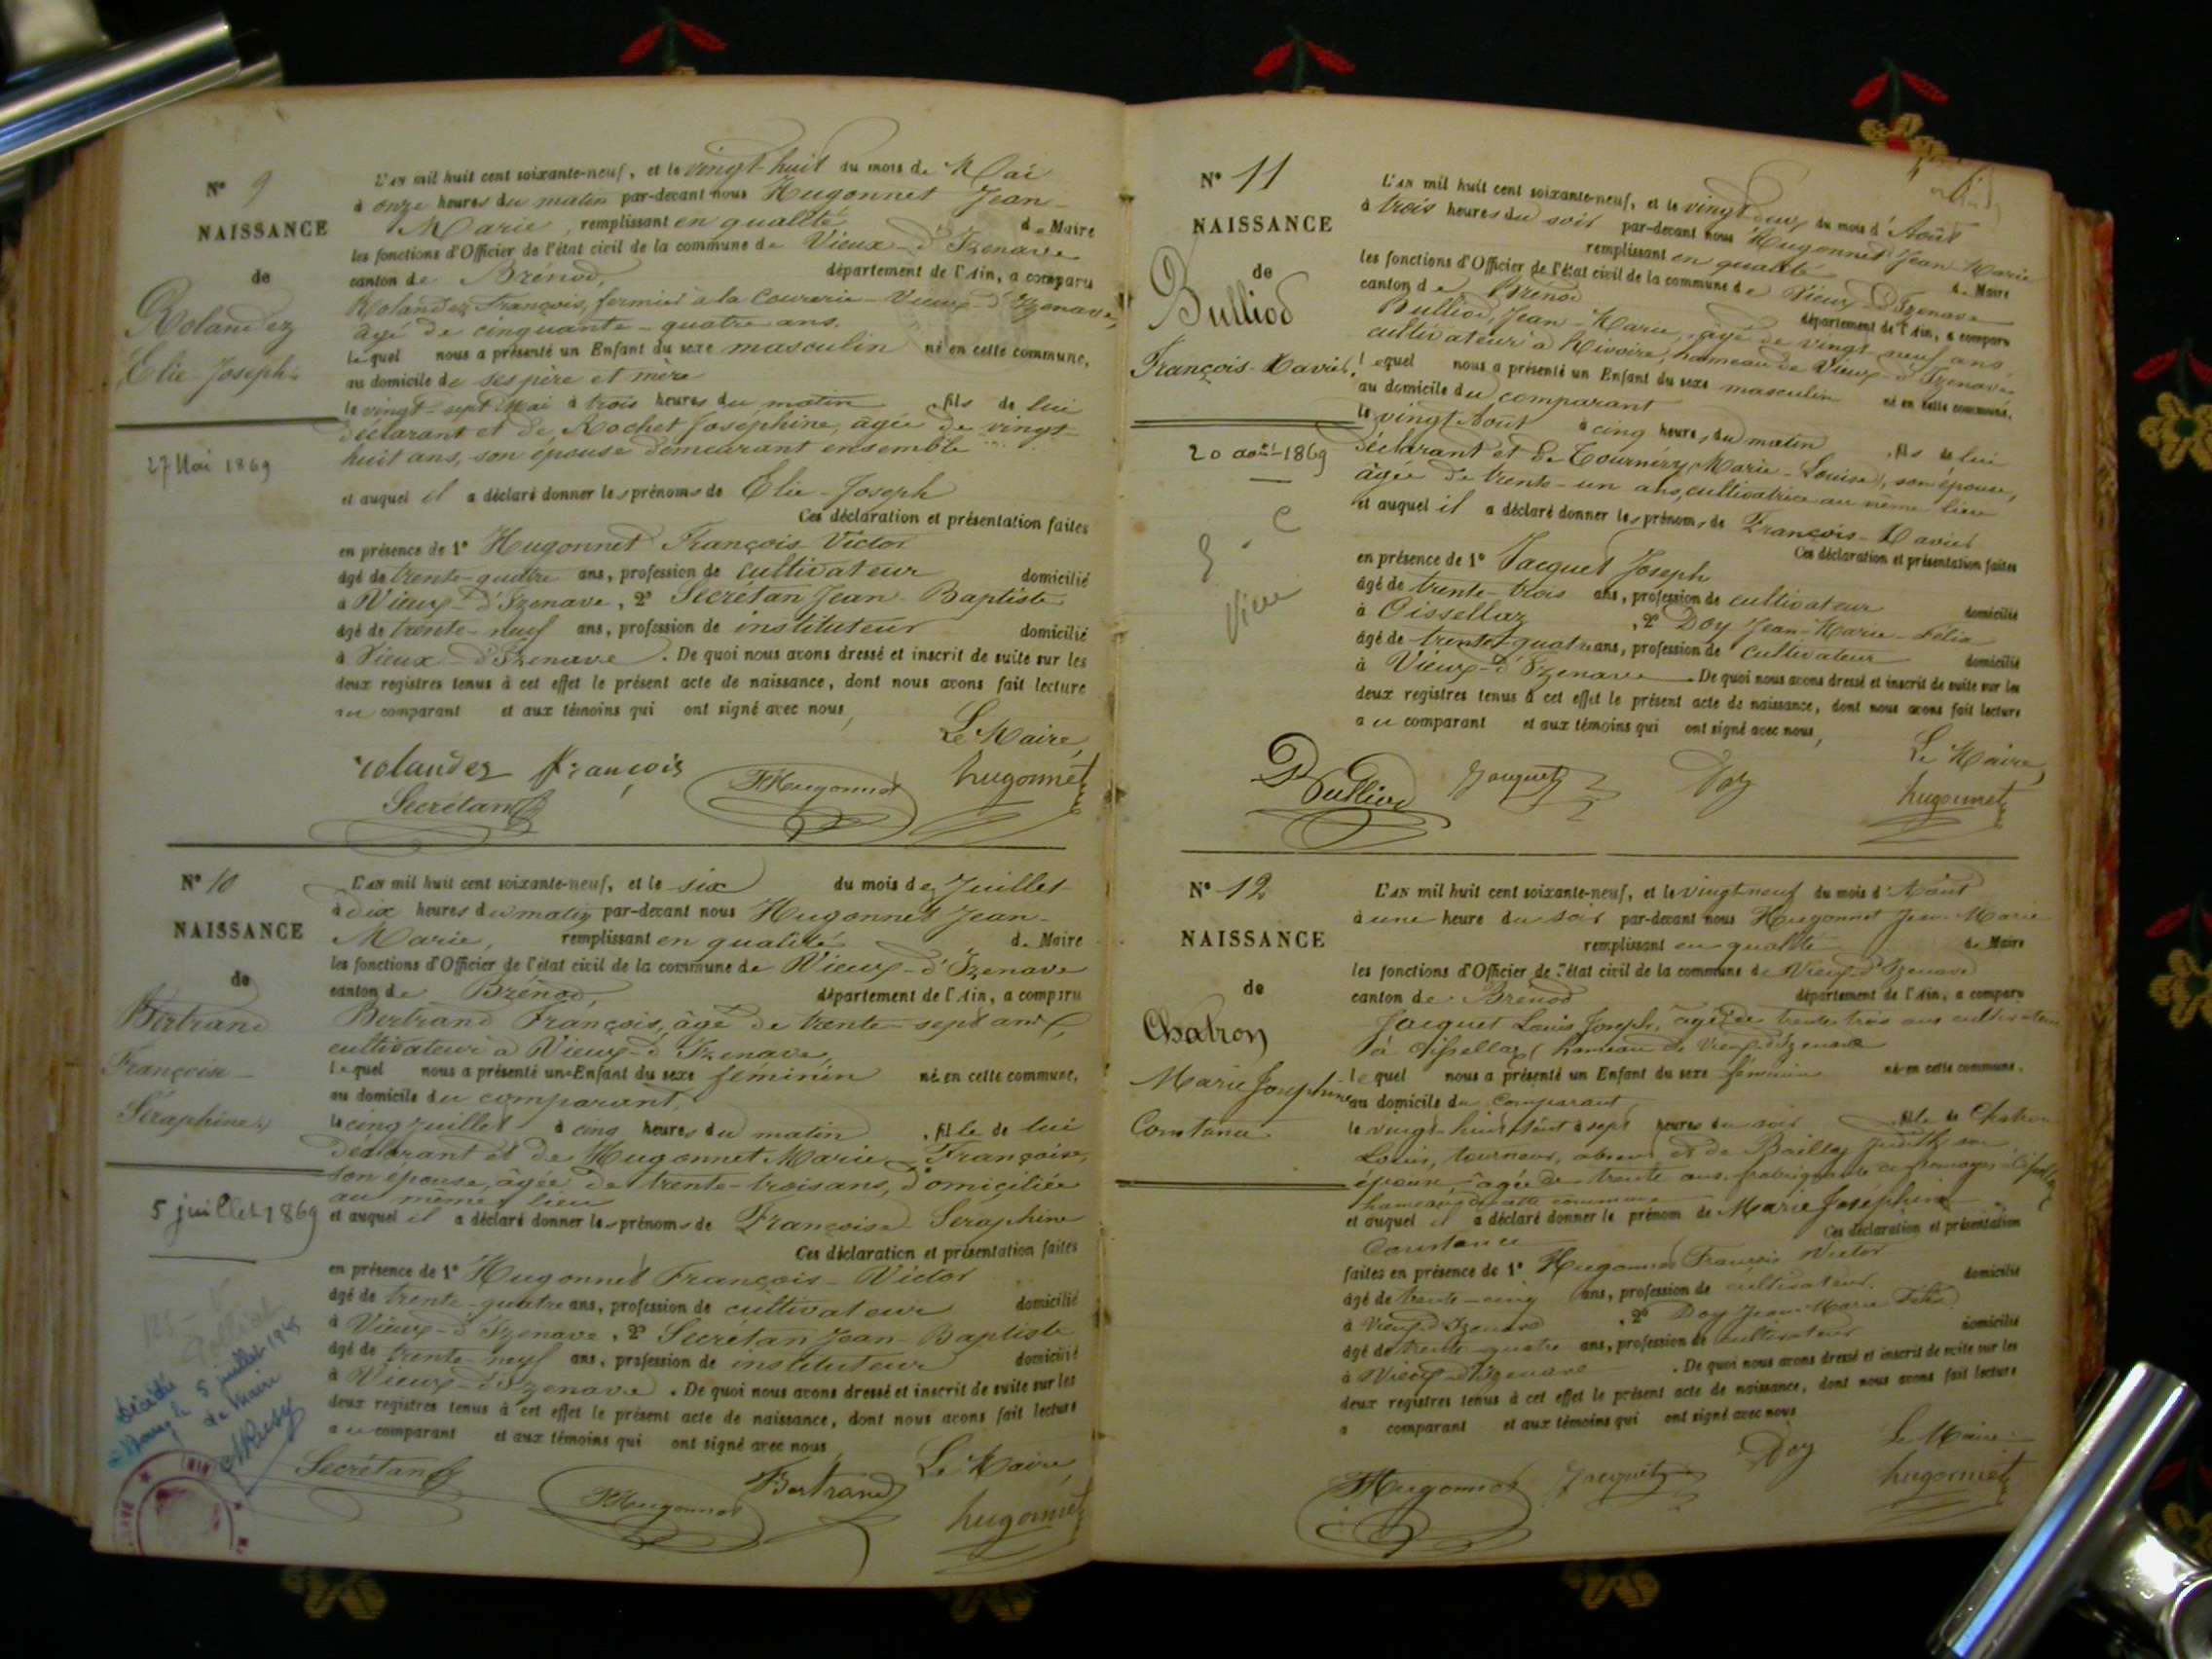 N° 9
NAISSANCE
de
Rolandez
Elie-Joseph
27 Mai 1869
L'AN mil huit cent soixante-neuf, et le vingt-huit du mois de Mai
à onze heures du matin par-devant nous Hugonnet Jean-
Marie, remplissant en qualité de Maire
les fonctions d'Officier de l'état civil de la commune de Vieux-d'Izenave
canton de Brénod, département de l'Ain, a comparu
Rolandez François, fermier à la Couverie-Vieux-d'Izenave,
âgé de cinquante-quatre ans.
lequel nous a présenté un Enfant du sexe masculin né en cette commune,
au domicile de ses père et mère
le vingt-sept Mai à trois heures du matin, fils de lui
déclarant et de Rochet Joséphine, agée de vingt-
huit ans, son épouse demeurant ensemble
et auquel il a déclaré donner les prénoms de Elie-Joseph
Ces déclaration et présentation faites
en présence de 1° Hugonnet François Victor
âgé de trente-quatre ans, profession de cultivateur domicilié
à Vieux-d'Izenave, 2° Secrétan Jean-Baptiste
âgé de trente-neuf ans, profession de instituteur domicilié
à Vieux-d'Izenave. De quoi nous avons dressé et inscrit de suite sur les
deux registres tenus à cet effet le présent acte de naissance, dont nous avons fait lecture
au comparant et aux témoins qui ont signé avec nous,
Le Maire,
rolandez françois FHugonnet hugonnet
Secrétan
N° 10
NAISSANCE
de
Bertrand
Françoise-
Séraphine
5 juillet 1869
décédé
à Bourg le 5 juillet
Le Maire
L'AN mil huit cent soixante-neuf, et le six du mois de Juillet
à dix heures du matin par-devant nous Hugonnet Jean-
Marie, remplissant en qualité de Maire
les fonctions d'Officier de l'état civil de la commune de Vieux-d'Izenave
canton de Brénod, département de l'Ain, a comparu
Bertrand François, âgé de trente-sept ans,
cultivateur à Vieux-d'Izenave,
lequel nous a présenté un Enfant du sexe féminin né en cette commune,
au domicile du comparant,
le cinq juillet à cinq heures du matin, fille de lui
déclarant et de Hugonnet Marie-Françoise,
son épouse, âgée de trente-trois ans, domiciliée
au même lieu
et auquel il a déclaré donner les prénoms de Françoise Séraphine
Ces déclaration et présentation faites
en présence de 1° Hugonnet François-Victor
âgé de trente-quatre ans, profession de cultivateur domicilié
à Vieux-d'Izenave, 2° Secrétan Jean-Baptiste
âgé de trente-neuf ans, profession de instituteur domicilié
à Vieux-d'Izenave. De quoi nous avons dressé et inscrit de suite sur les
deux registres tenus à cet effet le présent acte de naissance, dont nous avons fait lecture
au comparant et aux témoins qui ont signé avec nous
Le Maire,
Secrétan FHugonnet Bertrand hugonnet
N° 11
NAISSANCE
de
Bulliod
François-Xavier.
20 août 1869
L'AN mil huit cent soixante-neuf, et le vingt-deux du mois d'Août
à trois heures du soir par-devant nous Hugonnet Jean-Marie
remplissant en qualité de Maire
les fonctions d'Officier de l'état civil de la commune de Vieux-d'Izenave
canton de Brénod département de l'Ain, a comparu
Bulliod, Jean-Marie, âgé de vingt-neuf ans,
cultivateur à Rivoire, hameau de Vieux-d'Izenave
lequel nous a présenté un Enfant du sexe masculin né en cette commune,
au domicile du comparant
le vingt Août à cinq heures du matin, fils de lui
déclarant et de Tournéry Marie-Louise, son épouse,
âgée de trente-un ans, cultivatrice au même lieu
et auquel il a déclaré donner les prénoms de François-Xavier
Ces déclaration et présentation faites
en présence de 1° Jacquet Joseph
âgé de trente-trois ans, profession de cultivateur domicilié
à Oissellaz, 2° Doy Jean-Marie-Félix
âgé de trente-quatre ans, profession de cultivateur domicilié
à Vieux-d'Izenave. De quoi nous avons dressé et inscrit de suite sur les
deux registres tenus à cet effet le présent acte de naissance, dont nous avons fait lecture
au comparant et aux témoins qui ont signé avec nous,
Le Maire,
Bulliod Jacquet Doy hugonnet
N° 12
NAISSANCE
de
Chatron
Marie Joséphine
Constance
L'AN mil huit cent soixante-neuf, et le vingt neuf du mois d'Août
à une heure du soir par-devant nous Hugonnet Jean Marie
remplissant en qualité de Maire
les fonctions d'Officier de l'état civil de la commune de Vieux d'Izenave
canton de Brénod département de l'Ain, a comparu
Jacquet Louis Joseph, âgé de trente trois ans cultivateur
à Oissellaz, hameau de Vieux-d'Izenave
lequel nous a présenté un Enfant du sexe féminin né en cette commune,
au domicile du comparant,
le vingt-huit Août à sept heures du soir, fille de Chatron
Louis, tourneur, absent et de Bailly Judith son
épouse âgée de trente ans fabriquante de fromages
hameau de cette commune
et auquel il a déclaré donner le prénom de Marie Joséphine
Constance Ces déclaration et présentation
faites en présence de 1° Hugonnet François Victor
âgé de trente-cinq ans, profession de cultivateur domicilié
à Vieux-d'Izenave, 2° Doy Jean-Marie Félix
âgé de trente-quatre ans, profession de cultivateur domicilié
à Vieux-d'Izenave. De quoi nous avons dressé et inscrit de suite sur les
deux registres tenus à cet effet le présent acte de naissance, dont nous avons fait lecture
a comparant et aux témoins qui ont signé avec nous
Le Maire
FHugonnet Jacquet Doy hugonnet